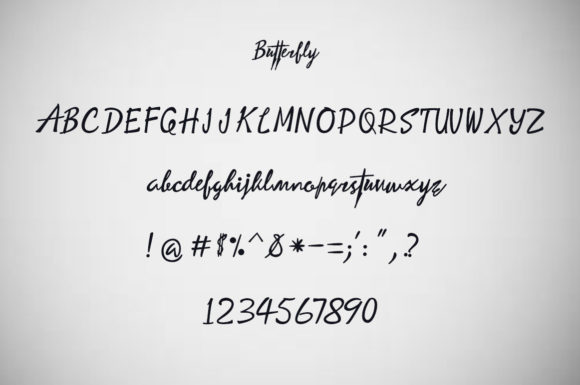 Butterfly
ABCDEFGHIJKLMNOPQRSTUVWXYZ
abcdefghijklmnopqrstuvwxyz
!@#$%^&*-=;':",.?
1234567890